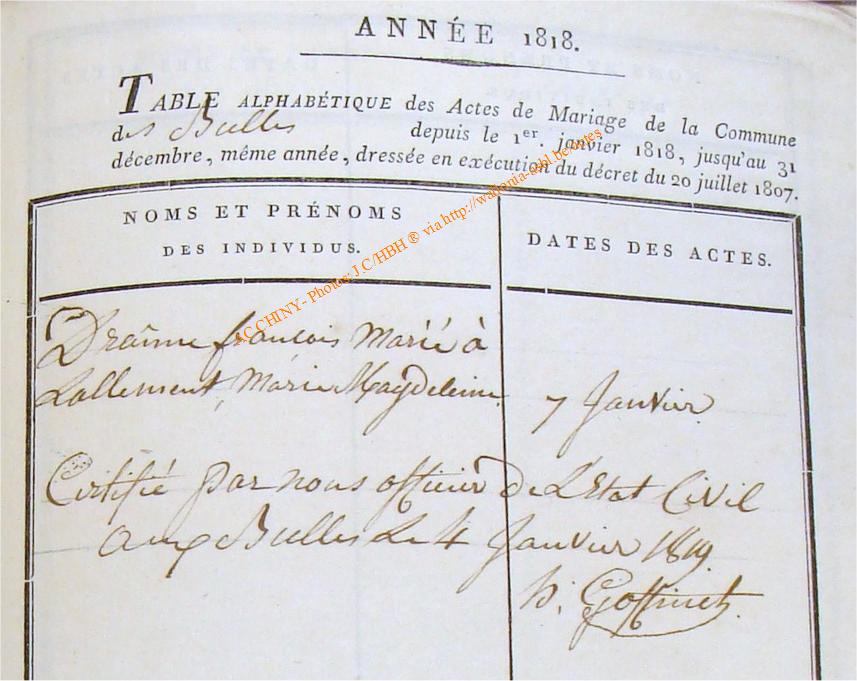 ANNÉE 1818.
TABLE ALPHABÉTIQUE des Actes de Mariage de la Commune
des Bulles depuis le 1er. janvier 1818, jusqu'au 31
décembre, même année, dressée en exécution du décret du 20 juillet 1807.
NOMS ET PRÉNOMS
DES INDIVIDUS.
DATES DES ACTES.
AC CHINY - Photos: J.C/HBH ® via http://wallonia-asbl.be/actes
françois Marié à
Lallement, Marie Magdeleine 7 Janvier
Certifié par nous officier de L'Etat Civil
aux Bulles Le 4 Janvier 1819.
h. Goffinet.